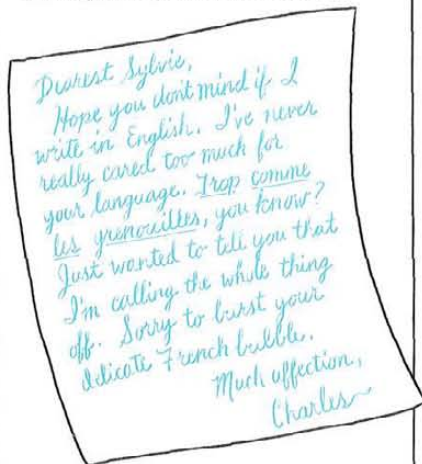 Dearest Sylvie,
Hope you dont mind if I
write in English. I've never
really cared too much for
your language. Trop comme
les grenouilles, you know?
Just wanted to tell you that
I'm calling the whole thing
off. Sorry to burst your
delicate French bubble.
Much affection,
Charles